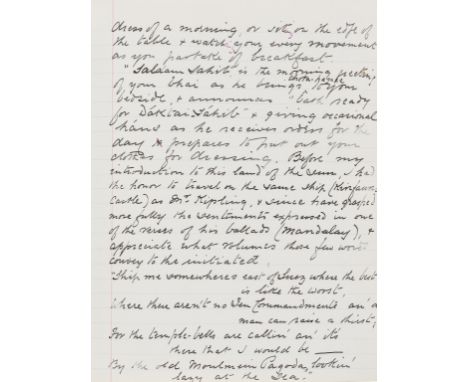 dress of a morning, or sit on the edge of
the table & watch your every movement
as you partake of breakfast.
"Salaam Sahib" is the morning greeting
of your bhai as he brings chota-hazri to your
bedside, & announces "bath ready
for Daktar Sahib" & giving occasional
"hāns as he receives orders for the
day & prepares to put out your
clothes for dressing. Before my
introduction to this land of the sun, I had
the honor to travel on the same ship (Kinfauns
Castle) as Mr. Kipling, & since have grasped
more fully the sentiments expressed in one
of the verses of his ballads (Mandalay), &
appreciate what volumes those few words
convey to the initiated.
"Ship me somewheres east of Suez where the best
is like the worst,
Where there aren't no Ten Commandments an' a
man can raise a thirst,
For the temple-bells are callin' an' it's
there that I would be —
By the old Moulmein Pagoda, lookin'
lazy at the Sea."